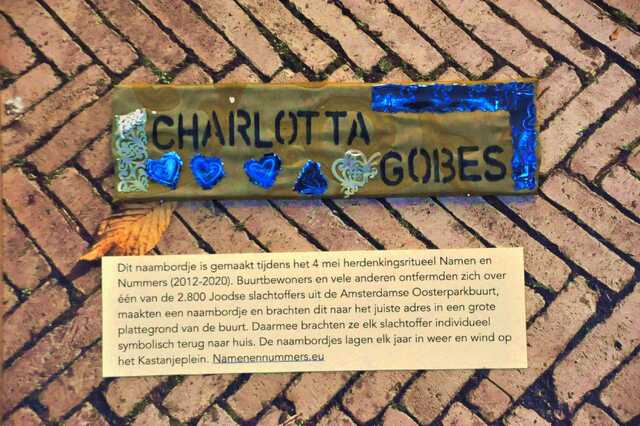 CHARLOTTA
GOBES
Dit naambordje is gemaakt tijdens het 4 mei herdenkingsritueel Namen en
Nummers (2012-2020). Buurtbewoners en vele anderen ontfermden zich over
één van de 2.800 Joodse slachtoffers uit de Amsterdamse Oosterparkbuurt,
maakten een naambordje en brachten dit naar het juiste adres in een grote
plattegrond van de buurt. Daarmee brachten ze elk slachtoffer individueel
symbolisch terug naar huis. De naambordjes lagen elk jaar in weer en wind op
het Kastanjeplein. Namenennummers.eu